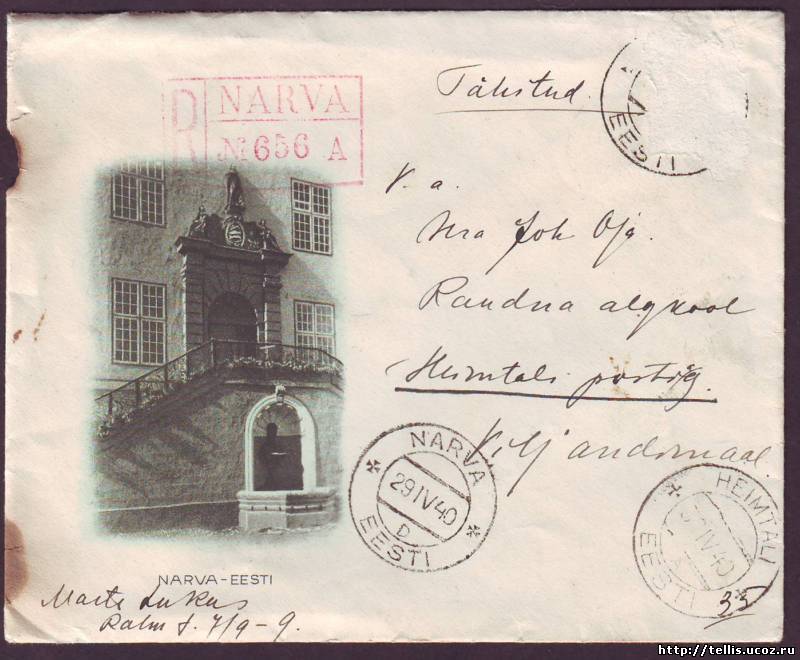 NARVA
№ 656 A
R
Tähitud.
EESTI
V. a.
Hra Joh Oja.
Raudna algkool
Heimtali postiag.
Viljandimaal.
NARVA
29 IV 40
D
EESTI
HEIMTALI
IV 40
EESTI
35
NARVA-EESTI
Lukas
7/9-9.
http://tellis.ucoz.ru